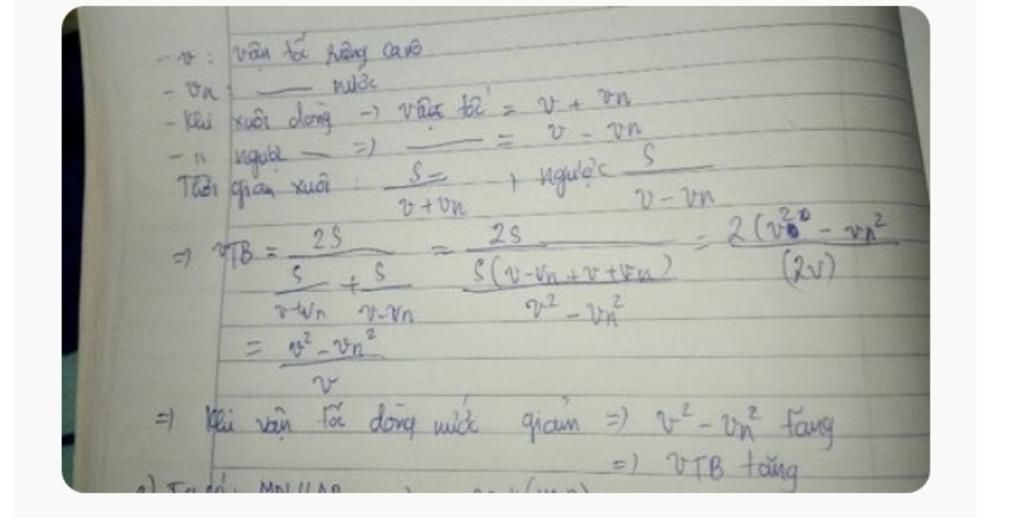 - v : vận tốc riêng canô
- vn : —— nước
- Khi xuôi dòng → vận tốc = v + vn
- n ngược — => —— = v - vn
Thời gian xuôi : S/(v + vn) , ngược S/(v - vn)
=> vTB = 2S/(S/(v+vn) + S/(v-vn)) = 2S/(S(v-vn+v+vn)/(v² - vn²)) = 2(v² - vn²/(2v)
= (v² - vn²)/v
=> Khi vận tốc dòng nước giảm => v² - vn² tăng
=> vTB tăng